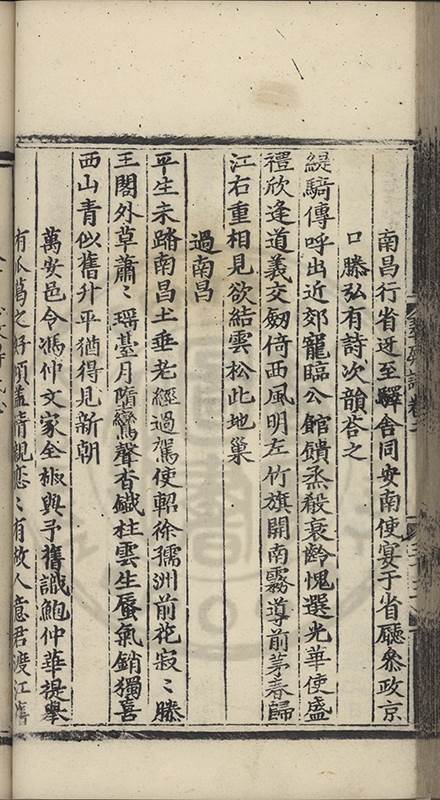 南昌行省迓至驛舍同安南使宴于省廳叅政京
口滕弘有詩次韻荅之
緹騎傳呼出近郊寵臨公館饋烝殽衰齡愧選光華使盛
禮欣逢道義交劒倚西風明左竹旗開南霧導前茅春歸
江右重相見欲結雲松此地巢
過南昌
平生未踏南昌土垂老經過駕使軺徐孺洲前花寂〻滕
王閣外草蕭〻瑶臺月隋鸞聲杳鐵柱雲生蜃氣銷獨喜
西山青似舊升平猶得見新朝
萬安邑令馮仲文家全椒與予舊識鮑仲華提舉
有瓜葛之好頃盖情親戀〻有故人意君渡江